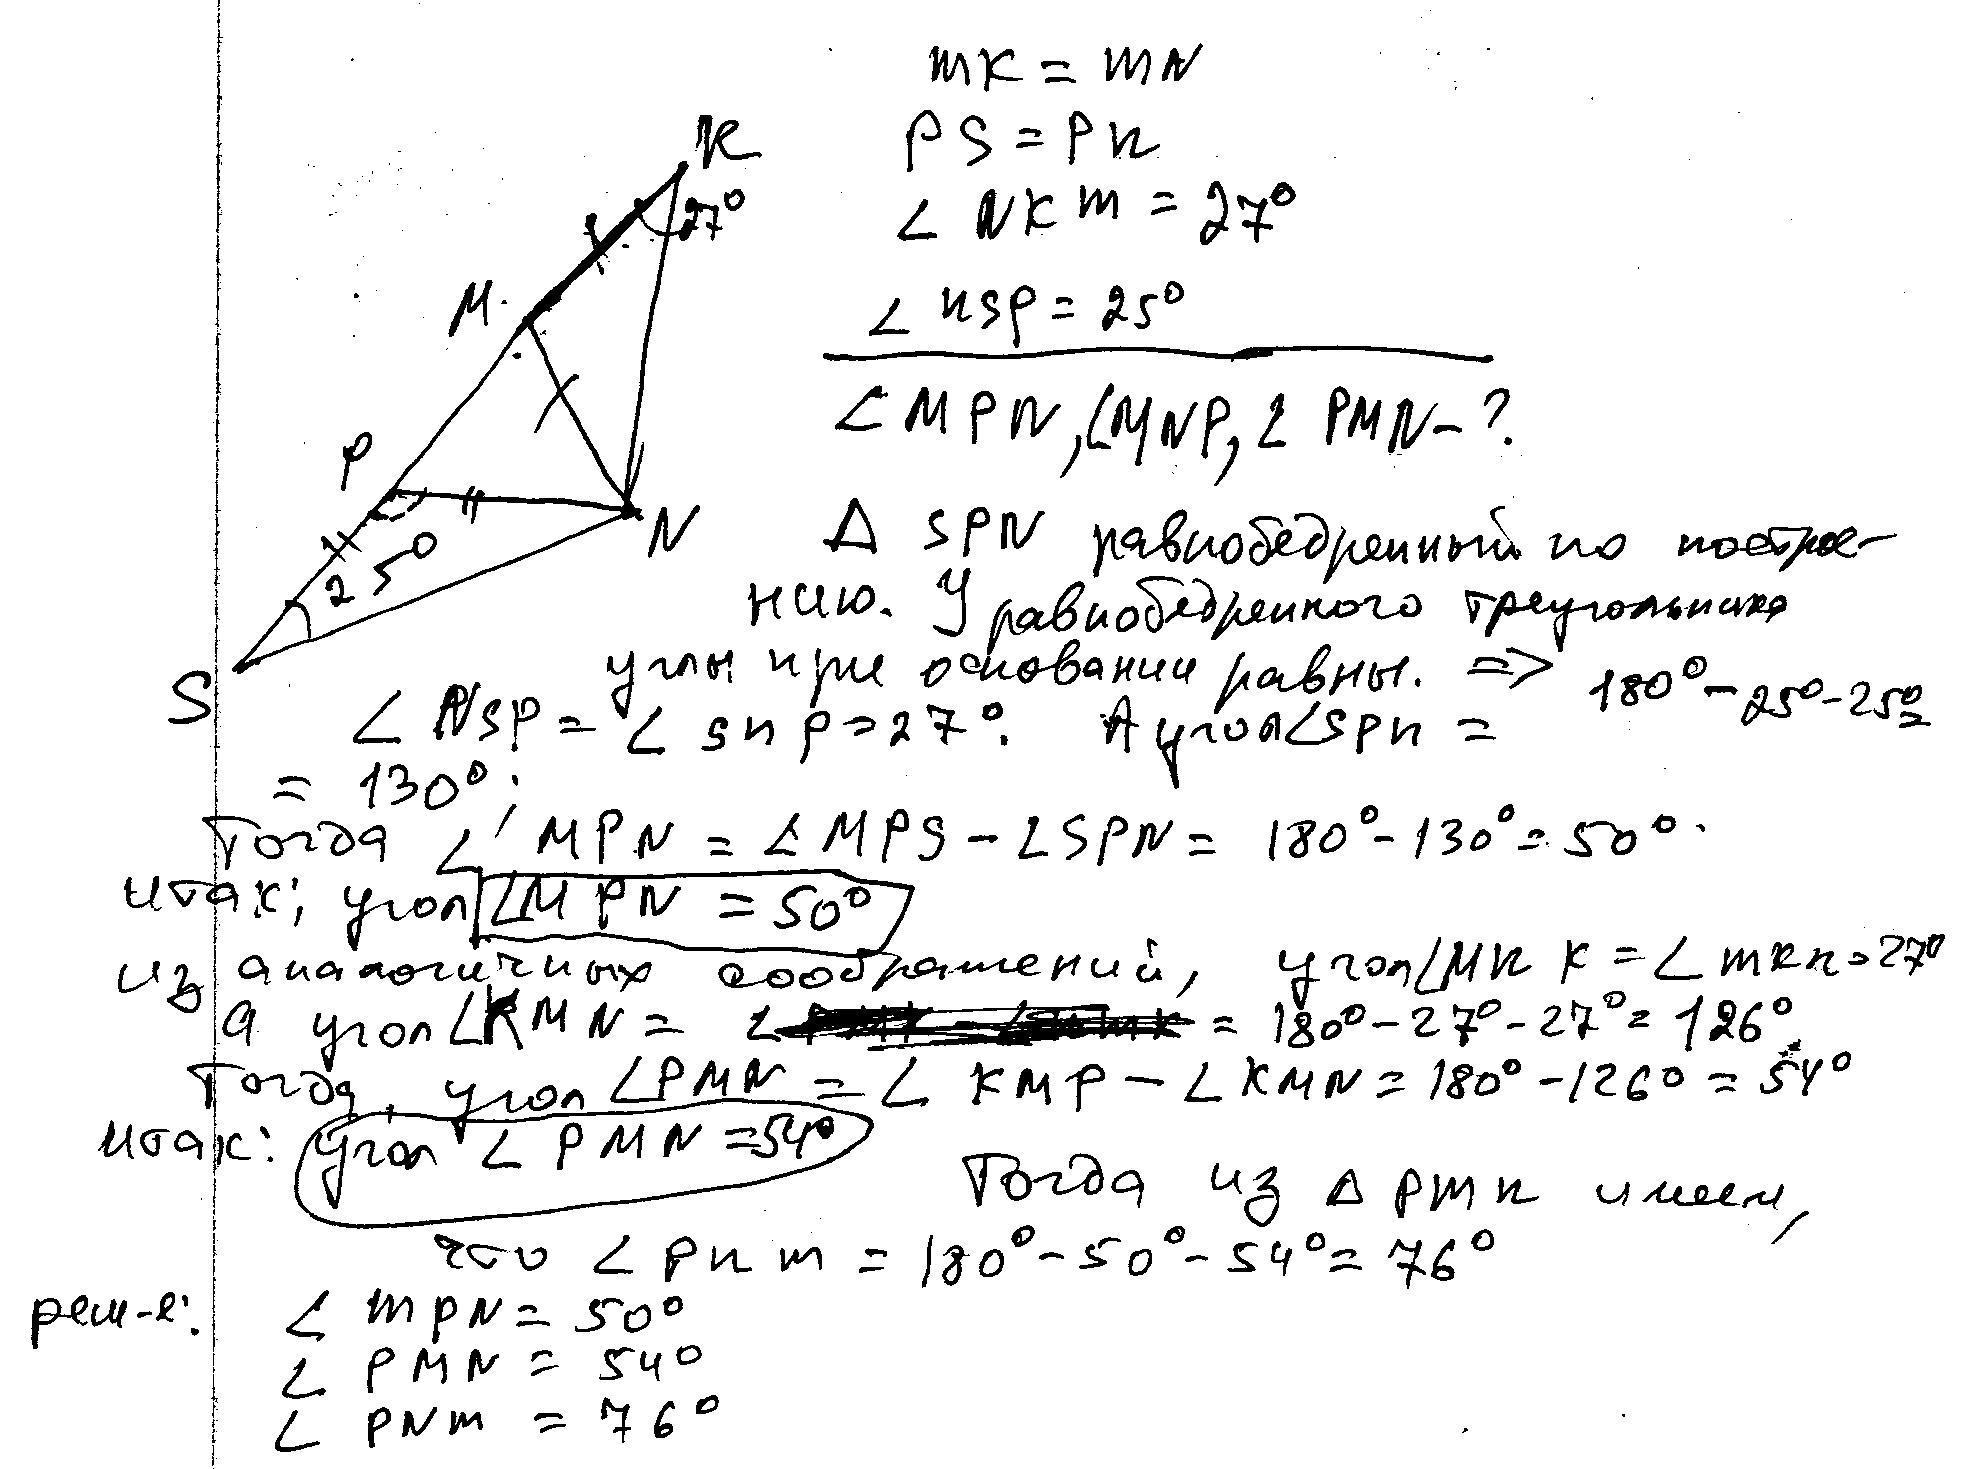 K
27°
M
P
N
25°
S
mK = mN
PS = Pn
∠ NKm = 27°
∠ nSP = 25°
∠ MPN, ∠MNP, ∠ PMN - ?
Δ SPN равнобедренный по построе-
нию. У равнобедренного треугольника
углы при основании равны. =>
∠ NSP = ∠ SnP = 27°. А угол ∠SPn = 180° - 25° - 25° =
= 130°;
Тогда ∠ MPN = ∠ MPS - ∠SPN = 180° - 130° = 50°.
итак; угол ∠MPN = 50°
из аналогичных соображений, угол ∠MnK = ∠ mKn = 27°
а угол ∠KMN = ∠ = 180° - 27° - 27° = 126°
Тогда, угол ∠PMN = ∠ KMP - ∠KMN = 180° - 126° = 54°
итак: угол ∠ PMN = 54°
Тогда из Δ PMn имеем,
что ∠ Pnm = 180° - 50° - 54° = 76°
реш-е:
∠ mPN = 50°
∠ PMN = 54°
∠ PNm = 76°